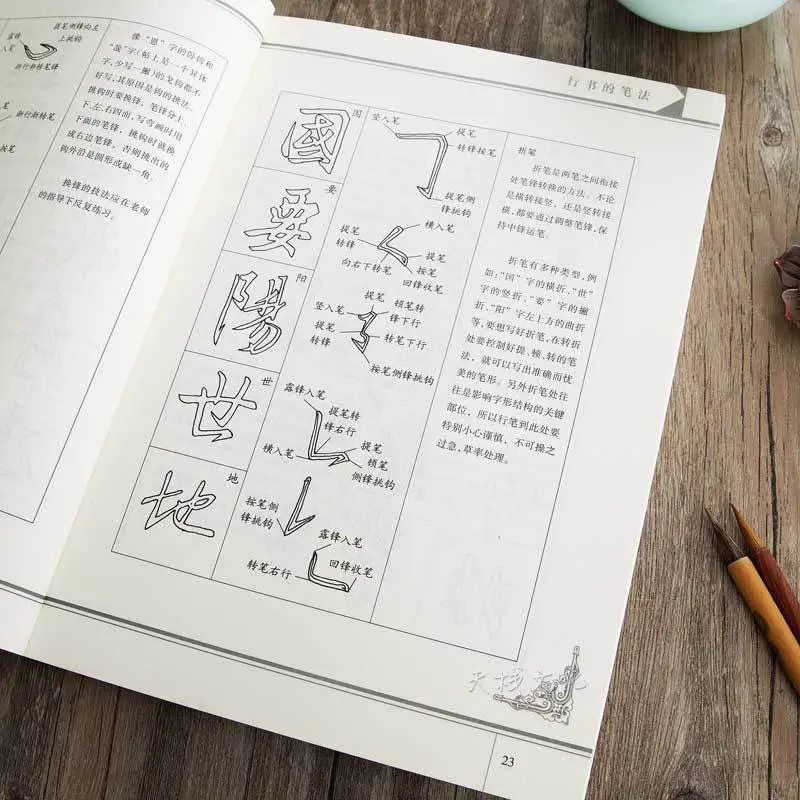 提笔侧锋向左
上挑钩
露锋
入笔
渐行渐转笔锋
渐行渐转笔
按笔
像“恩”字的卧钩和
“哉”字(帖上是一个异体
字,少写一撇)的戈钩都不
好写,其原因是钩的挑法。
挑钩时要换锋,笔锋分上、
下、左、右四面,写弯画时用
下面的笔锋,挑钩时就换
成右边笔锋,否则挑出的
钩外沿是圆形或缺一角。
换锋的技法应在老师
的指导下反复练习。
行书的笔法
國
国
要
要
陽
阳
世
世
地
地
竖入笔
提笔
转锋按笔
提笔侧
锋挑钩
横入笔
提笔
转锋
提笔
按笔
向右下转笔
回锋收笔
提笔
顿笔转
锋下行
竖入笔
提笔
转锋
转笔下行
按笔侧锋挑钩
露锋入笔
提笔转
锋右行
横入笔
提笔
顿笔
侧锋挑钩
按笔侧
锋挑钩
露锋入笔
转笔右行
回锋收笔
折笔
折笔是两笔之间衔接
处笔锋转换的方法。不论
是横转接竖,还是竖转接
横,都要通过调整笔锋,保
持中锋运笔。
折笔有多种类型,例
如:“国”字的横折、“世”
字的竖折、“要”字的撇
折、“阳”字左上方的曲折
等,要想写好折笔,在转折
处要控制好提、顿、转的笔
法,就可以写出准确而优
美的笔形。另外折笔处往
往是影响字形结构的关键
部位,所以行笔到此处要
特别小心谨慎,不可操之
过急,草率处理。
23